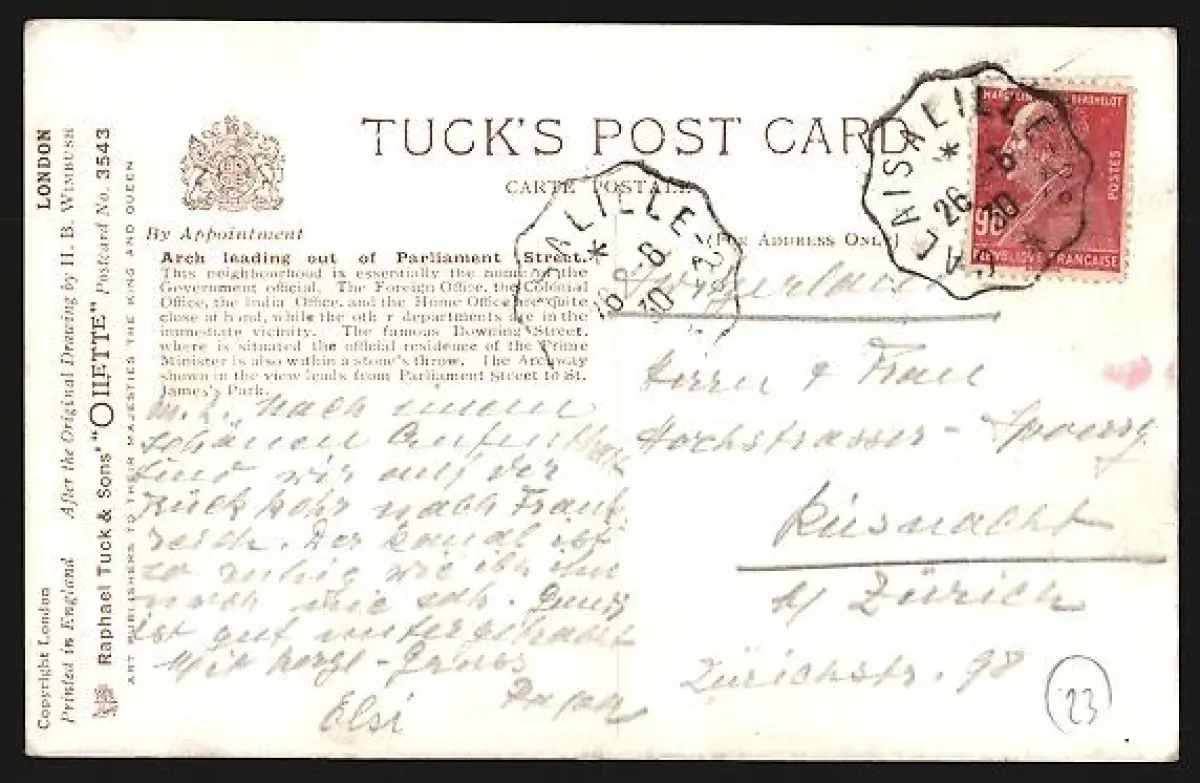 TUCK'S POST CARD
CARTE POSTALE
(FOR ADDRESS ONLY)
By Appointment
Arch leading out of Parliament Street.
This neighbourhood is essentially the home of the
Government official. The Foreign Office, the Colonial
Office, the India Office, and the Home Office are quite
close at hand, while the other departments are in the
immediate vicinity. The famous Downing Street,
where is situated the official residence of the Prime
Minister is also within a stone's throw. The Archway
shown in the view leads from Parliament Street to St.
James's Park.
M. L. Nach einem
schönen
sind wir auf der
Rückkehr nach Frank
reich. Der Kanal ist
so ruhig wie ich ihn
noch nie sah.
ist gut untergebracht
Mit herzl - Gruss
Elsi
Herrn & Frau
Hochstrasser - Spoerry
Küsnacht
a/ Zürich
Zürichstr. 98
23
CALAIS A LILLE - 2°
*
26 - 8
30
*
CALAIS A LILLE - 2°
*
26 - 8
30
MARCELIN BERTHELOT
POSTES
90
REPUBLIQUE FRANCAISE
LONDON
After the Original Drawing by H. B. WIMBUSH
Raphael Tuck & Sons' "OILETTE" Postcard No. 3543
ART PUBLISHERS TO THEIR MAJESTIES THE KING AND QUEEN
Copyright London
Printed in England